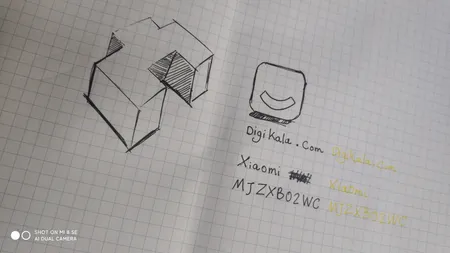 DigiKala.Com DigiKala.Com
Xiaomi Xiaomi
MJZXB02WC MJZXB02WC
SHOT ON MI 8 SE
AI DUAL CAMERA